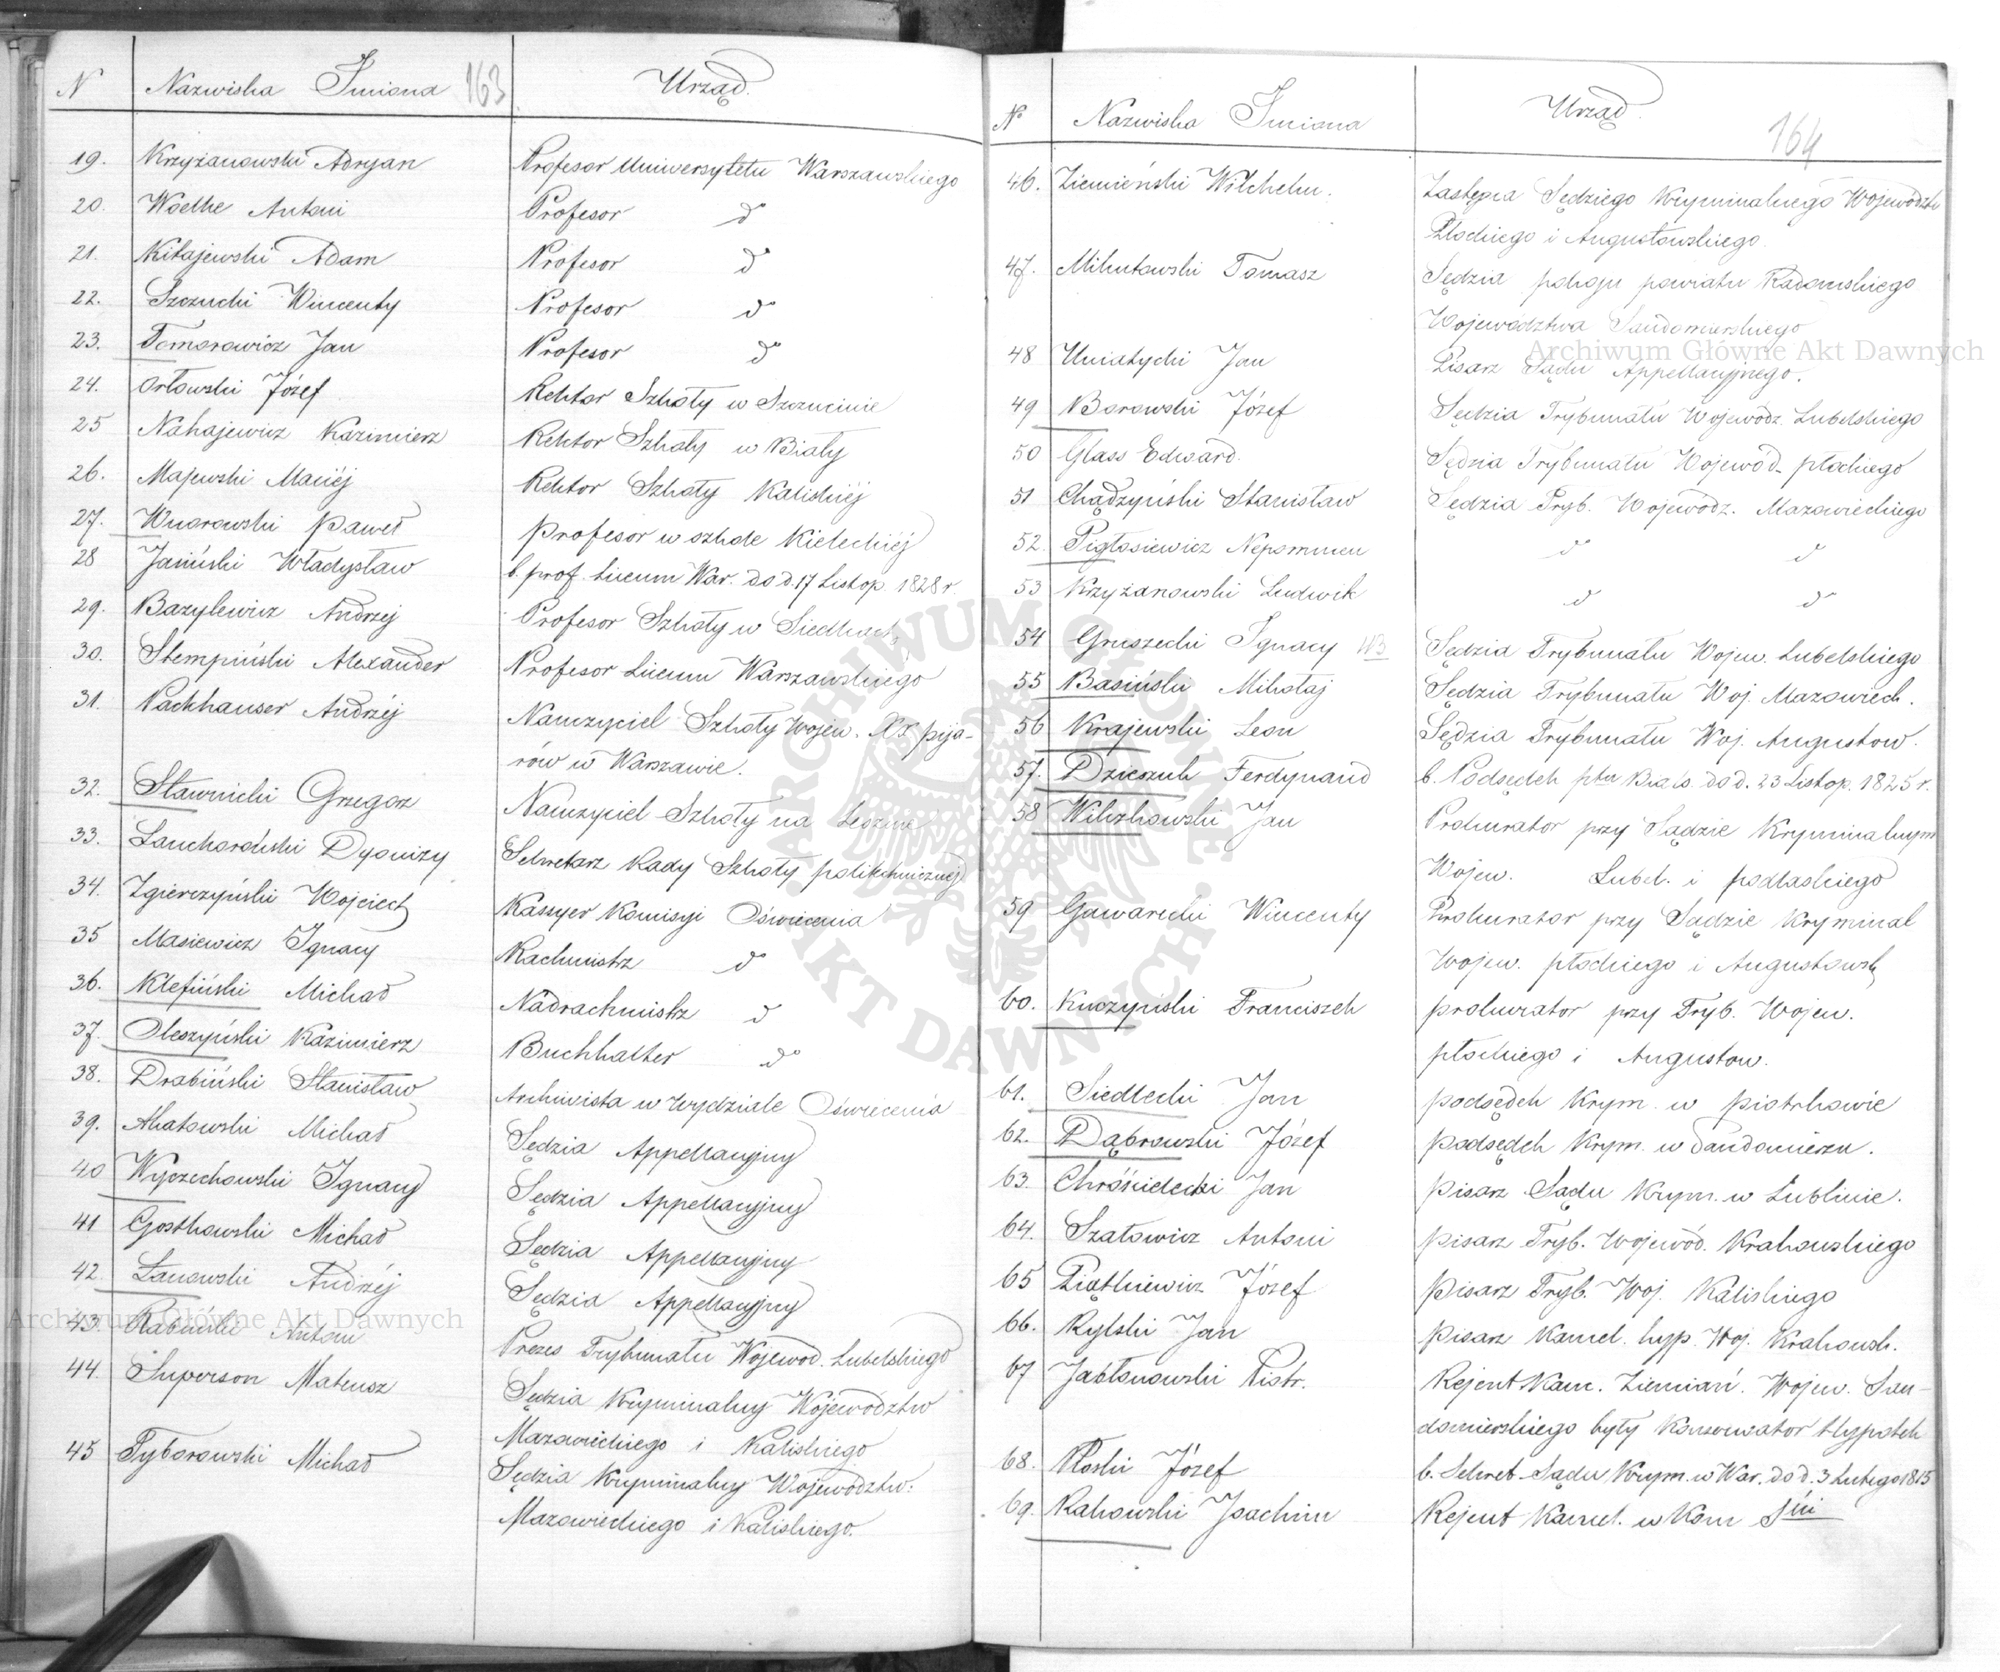 N Nazwiska Imiona 163 Urząd.
19. Krzyżanowski Adryan Profesor Uniwersytetu Warszawskiego
20. Woelke Antoni Profesor d°
21. Kitajewski Adam Profesor d°
22. Szczucki Wincenty Profesor d°
23. Tomorowicz Jan Profesor d°
24. Orłowski Józef Rektor Szkoły w Szczucinie
25 Nahajewicz Kazimierz Rektor Szkoły w Biały
26. Majewski Maciéj Rektor Szkoły Kaliskiéj
27. Wnorowski Paweł Profesor w szkole Kieleckiéj
28 Jasiński Władysław b. prof. Liceum War. do d. 17 Listop. 1828 r.
29. Bazylewicz Andrzéj Profesor Szkoły w Siedlcach
30. Stempiński Alexander Profesor Liceum Warszawskiego
31. Packhauser Andrzéj Nauczyciel Szkoły Wojew. XX pija-
rów w Warszawie.
32. Sławnicki Grzegorz Nauczyciel Szkoły na Lesznie
33. Lanckoroński Dyonizy Sekretarz Rady Szkoły politechnicznéj
34. Zgierczyński Wojciech Kassyer Komisyi Oświecenia
35 Masiewicz Ignacy Rachmistrz d°
36. Klefiński Michał Nadrachmistrz d
37. Oleszyński Kazimierz Buchhalter d°
38. Drabiński Stanisław Archiwista w Wydziale Oświecenia
39. Akatowski Michał Sędzia Appellacyjny
40 Wyczechowski Ignacy Sędzia Appellacyjny
41 Gostkowski Michał Sędzia Appellacyjny
42. Łanowski Andrzéj Sędzia Appellacyjny
43. Rabiński Antoni Prezes Trybunału Wojewod. Lubelskiego
44. Superson Mateusz Sędzia Kryminalny Województw
Mazowieckiego i Kaliskiego
45 Tyborowski Michał Sędzia Kryminalny Województw:
Mazowieckiego i Kaliskiego.
N° Nazwiska Imiona Urząd. 164
46. Ziemieński Wilchelm. Zastępca Sędziego Kryminalnego Wojewodztw
Płockiego i Augustowskiego.
47. Milutowski Tomasz Sędzia pokoju powiatu Radomskiego
Województwa Sandomierskiego
48 Uniatycki Jan Pisarz Sądu Appellacyjnego.
49 Borowski Józef Sędzia Trybunału Wojewódz. Lubelskiego
50 Glass Edward. Sędzia Trybunału Wojewód. płockiego
51 Chądzyński Stanisław Sędzia Tryb. Wojewódz. Mazowieckiego
52. Pigłosiewicz Nepomucen d d
53 Krzyżanowski Ludwik d d
54 Gruszecki Ignacy N3 Sędzia Trybunału Wojew. Lubelskiego
55 Basiński Mikołaj Sędzia Trybunału Woj. Mazowieck.
56 Krajewski Leon Sędzia Trybunału Woj. Augustow.
57. Dzieszuk Ferdynand b. Podsędek ptu Bials. do d. 23 Listop. 1825 r.
58 Wilczkowski Jan Prokurator przy Sądzie Kryminalnym
Wojew. Lubel. i podlaskiego
59 Gawarecki Wincenty Prokurator przy Sądzie Kryminal
Wojew. płockiego i Augustowsk
60. Kuczyński Franciszek prokurator przy Tryb. Wojew.
płockiego i Augustow.
61. Siedlecki Jan podsędek Krym. w Piotrkowie
62. Dąbrowski Józef podsędek Krym. w Sandomierzu.
63. Chróścielecki Jan pisarz Sądu Krym. w Lublinie.
64. Szatowicz Antoni pisarz Tryb. Wojewód. Krakowskiego
65 Piątkiewicz Józef pisarz Tryb. Woj. Kaliskiego
66. Rylski Jan pisarz Kancel. hyp. Woj. Krakowsk.
67 Jabłonowski Piotr. Rejent Kanc. Ziemiań. Wojew. San-
domierskiego były Konserwator Hypotek
68. Płoski Józef b. Sekret. Sądu Krym. w War. do d. 3 Lutego 1815
69. Rakowski Joachim Rejent Kancel. w Kom Sńi
Archiwum Główne Akt Dawnych
Archiwum Główne Akt Dawnych
ARCHIWUM GŁÓWNE AKT DAWNYCH